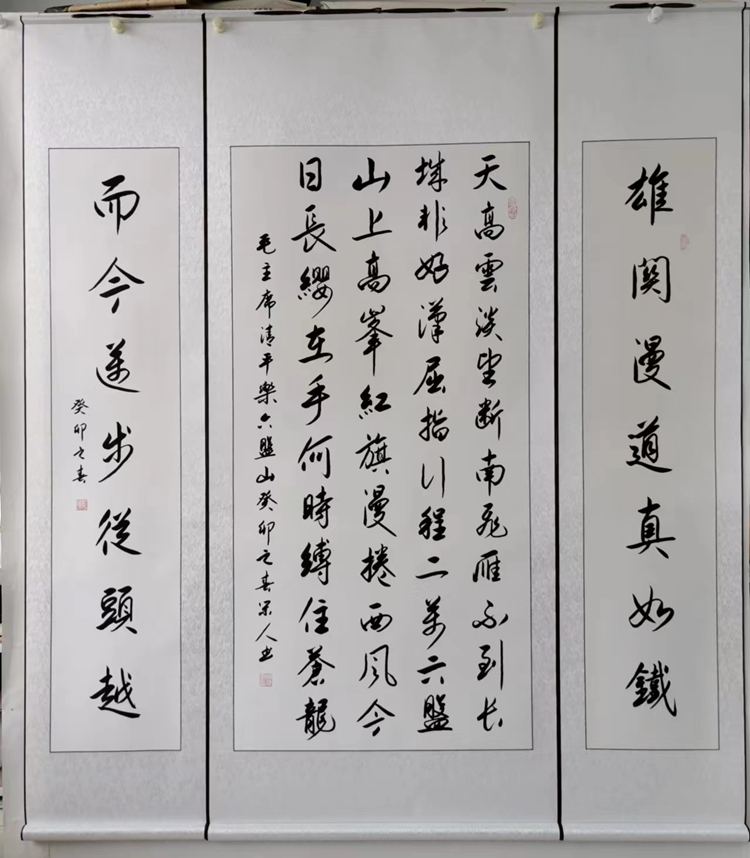 雄関漫道真如鐵
天高雲淡望斷南飛雁不到长
城非好漢屈指行程二萬六盤
山上高峯紅旗漫捲西風今
日長纓在手何時縛住蒼龍
毛主席清平樂六盤山癸卯之春人书
而今邁步從頭越
癸卯之春